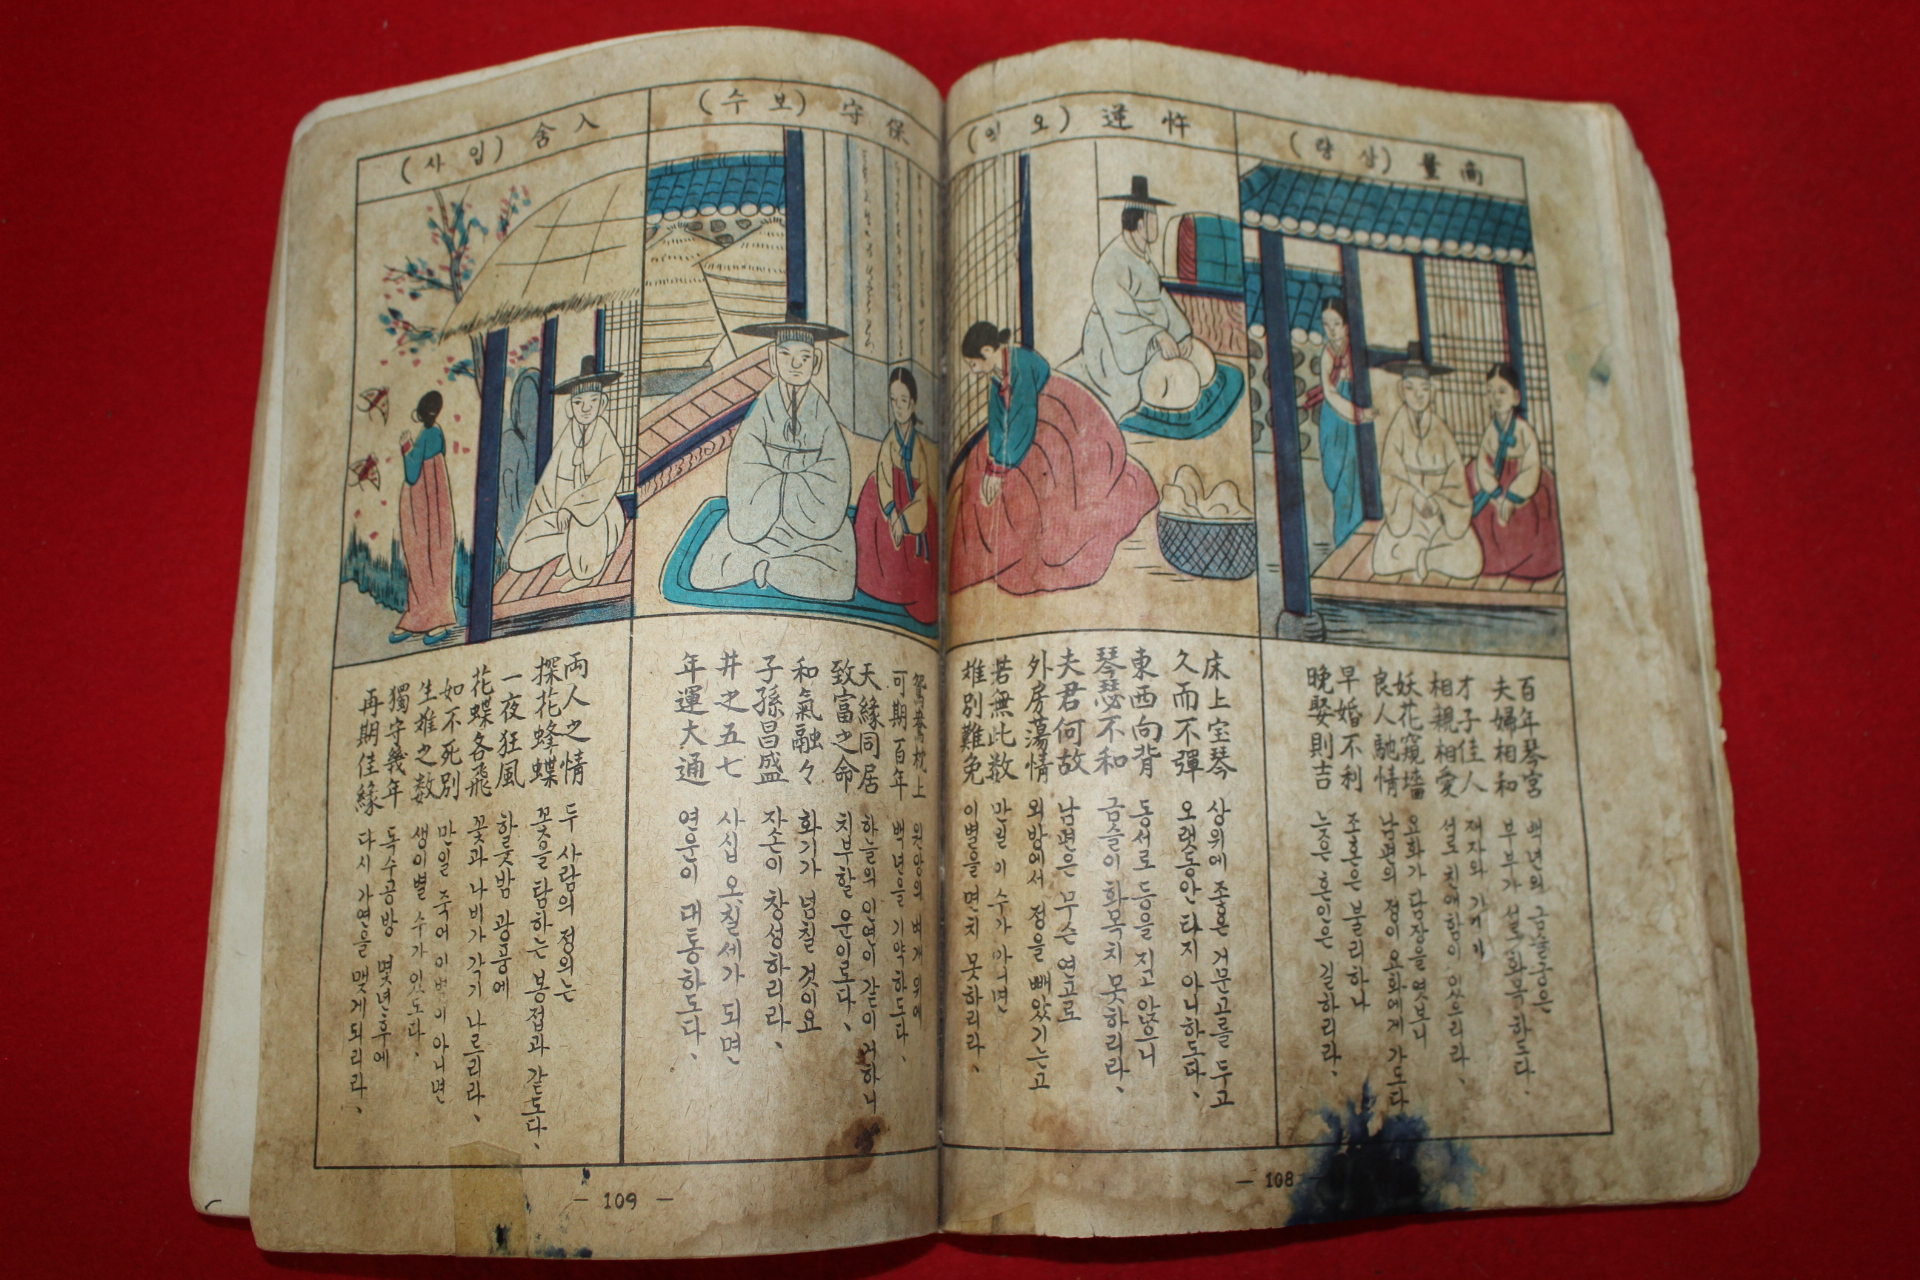 高量 (상량)
百年琴宮
夫婦相和
才子佳人
相親相愛
妖花窺墻
良人馳情
早婚不利
晩娶則吉
백년의 금슬궁은
부부가 서로 화목하도다.
재자와 가인이
서로 친애함이 있으리라、
요화가 담장을 엿보니
남편의 정이 요화에게 가도다
조혼은 불리하나
늦은 혼인은 길하리라.
忤逆 (오역)
床上宝琴
久而不彈
東西向背
琴瑟不和
夫君何故
外房蕩情
若無此数
雄別難免
상위에 좋은 거문고를 두고
오랫동안 타지 아니하도다、
동서로 등을 지고 앉으니
금슬이 화목치 못하리라、
남편은 무슨 연고로
외방에서 정을 빼앗기는고
만일 이 수가 아니면
이별을 면치 못하리라、
保守 (보수)
鴛鴦枕上
可期百年
天緣同居
致富之命
和氣融々
子孫昌盛
井之五七
年運大通
원앙의 벼개 위에
백년을 기약하도다、
하늘의 인연이 같이 거하니
치부할 운이로다、
화기가 넘칠 것이요
자손이 창성하리라、
사십 오칠세가 되면
연운이 대통하도다、
入舍 (입사)
両人之情
探花蜂蝶
一夜狂風
花蝶各飛
如不死別
生離之数
獨守幾年
再期佳緣
두 사람의 정의는
꽃을 탐하는 봉접과 같도다、
하룻밤 광풍에
꽃과 나비가 각기 나르리라、
만일 죽어 이별이 아니면
생이별 수가 있도다、
독수공방 몇년후에
다시 가연을 맺게되리라、
— 108 —
— 109 —